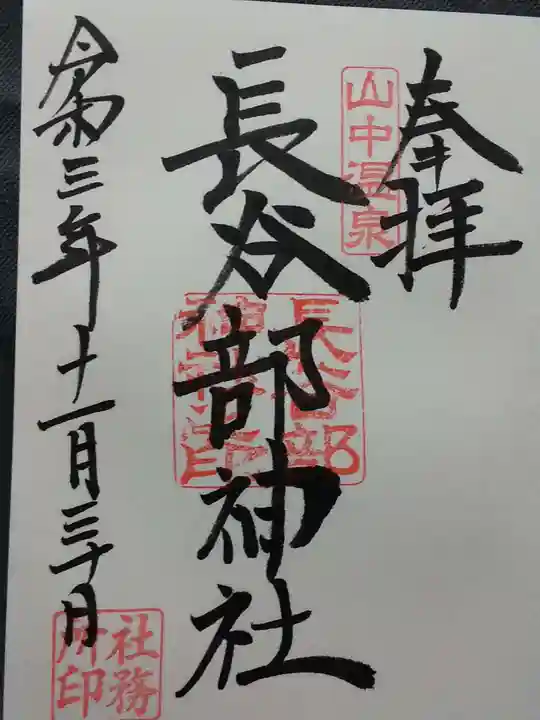 奉拝
山中温泉
長谷部神社
長谷部
神社之印
令和三年十一月三十日
社務
所印